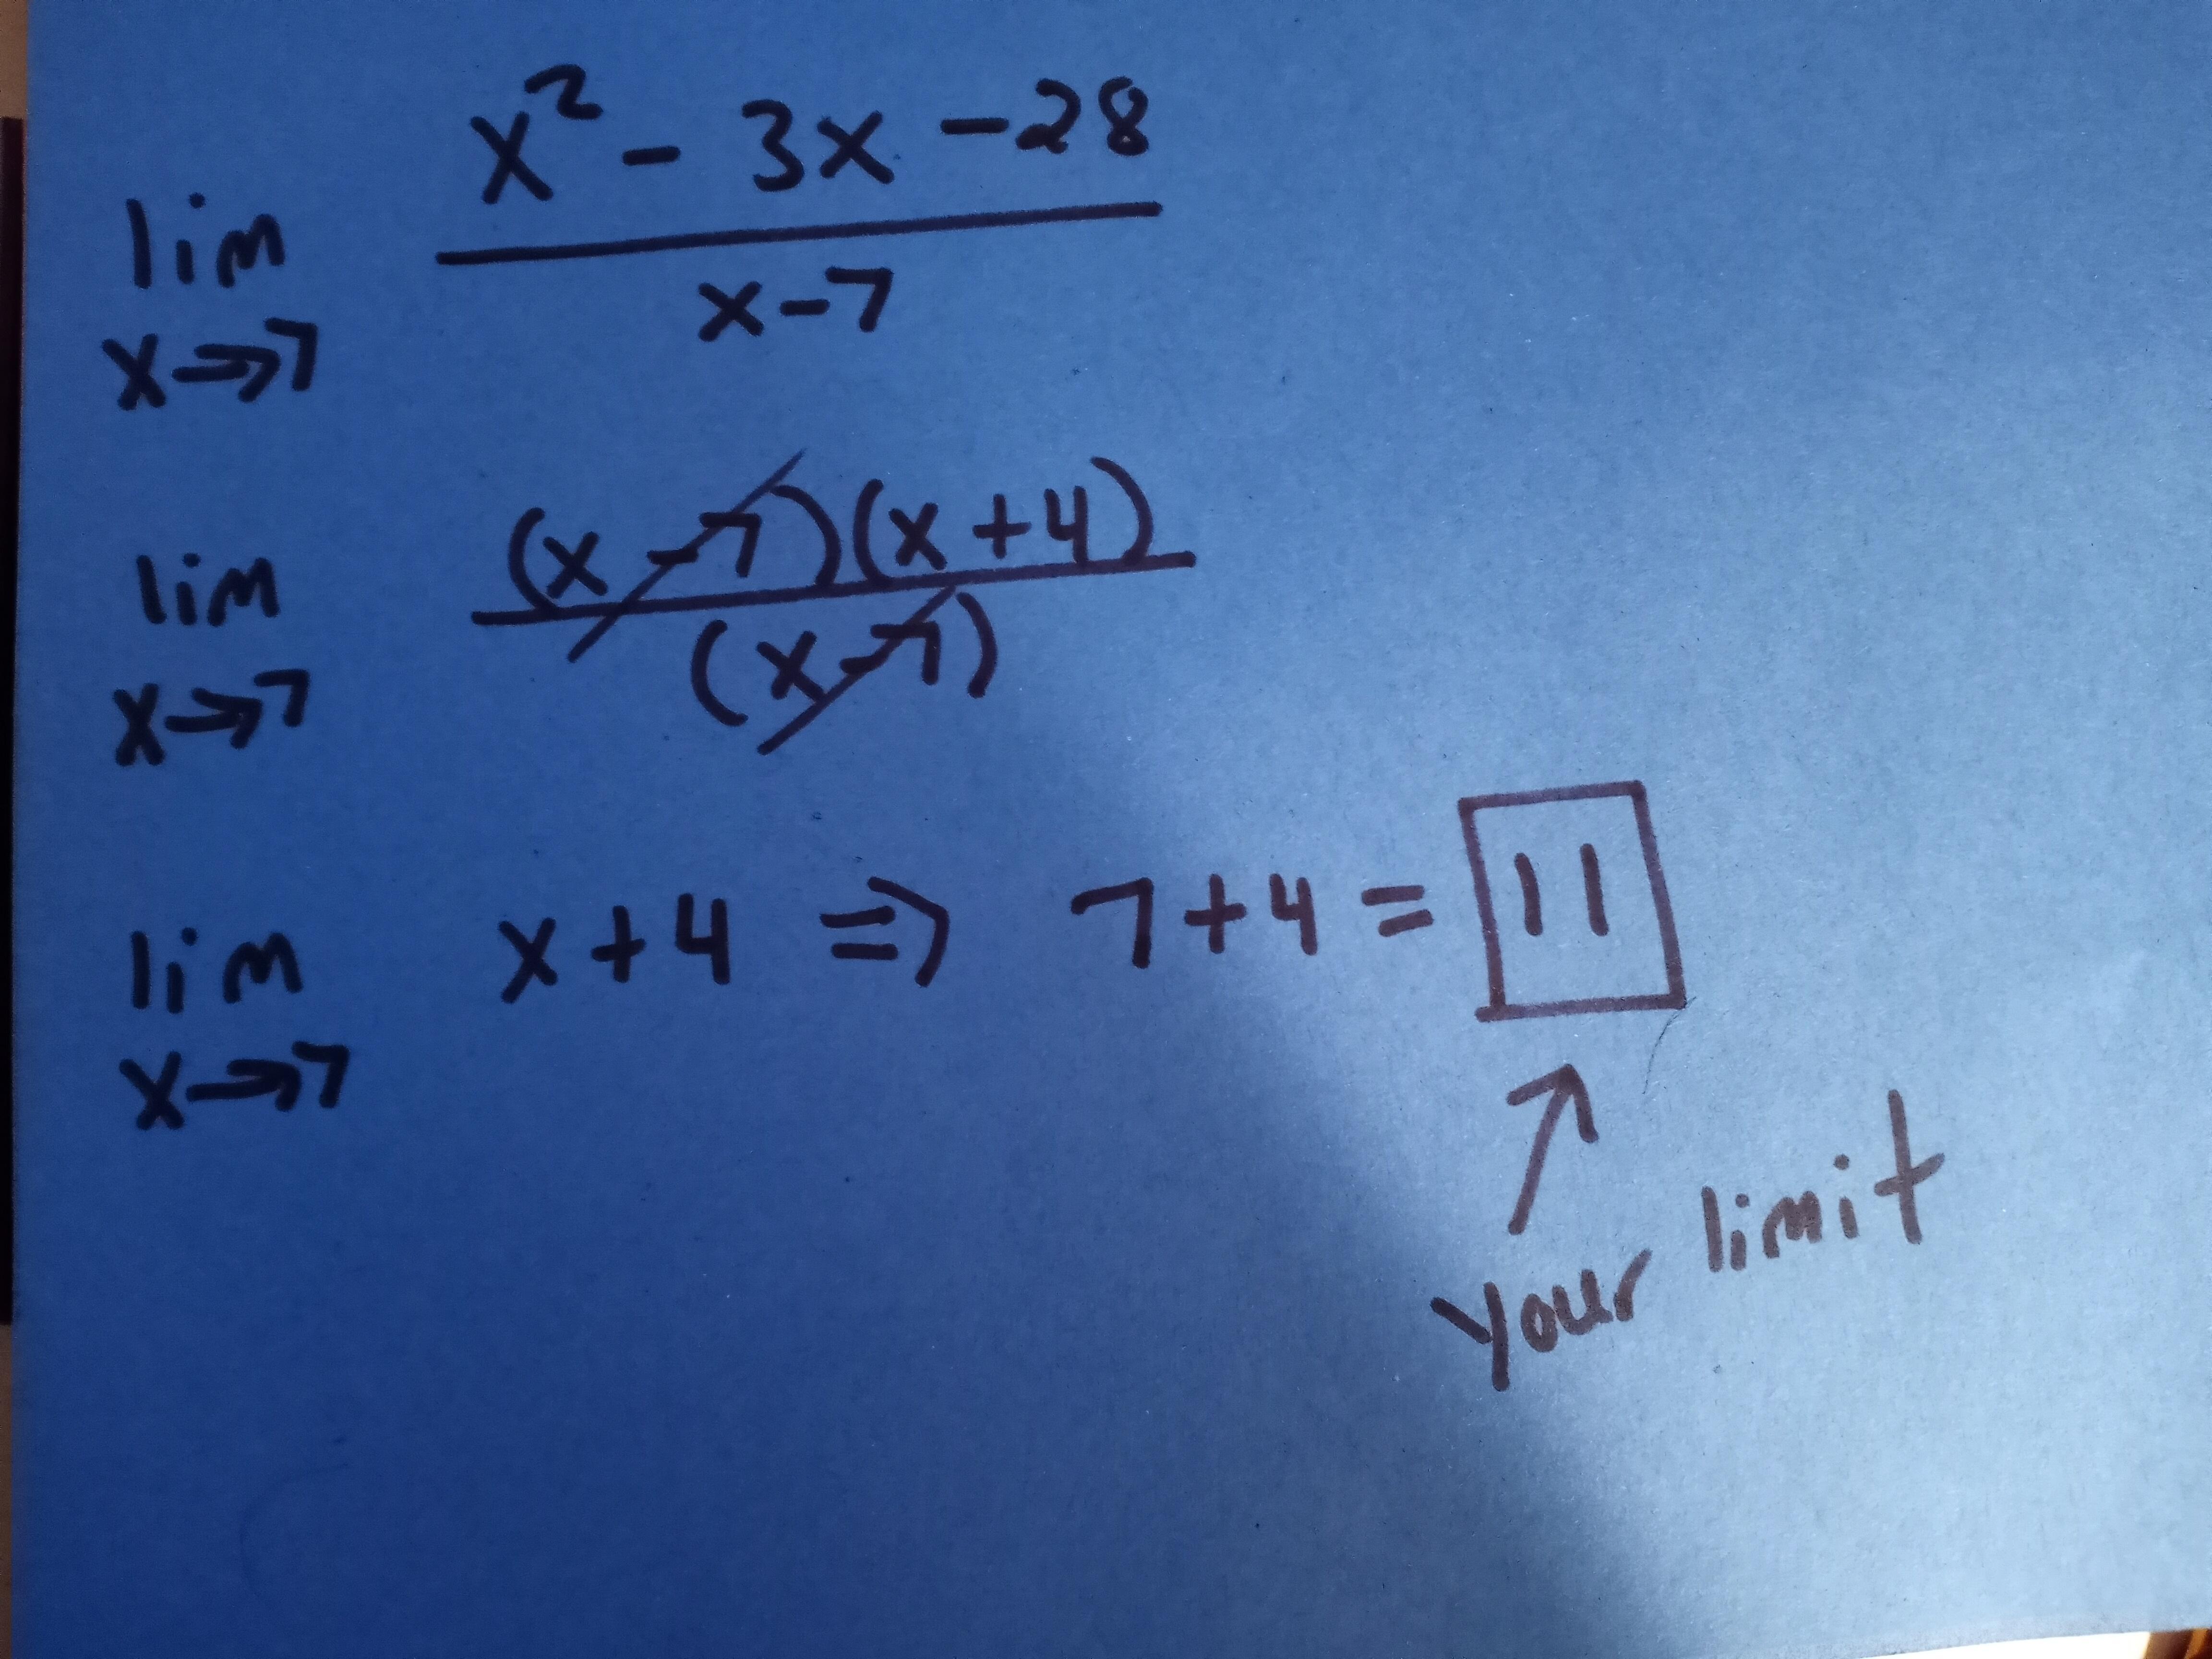 lim x→7 x² - 3x - 28 / x-7
lim x→7 (x-7)(x+4) / (x-7)
lim x→7 x+4 ⇒ 7+4 = 11
your limit